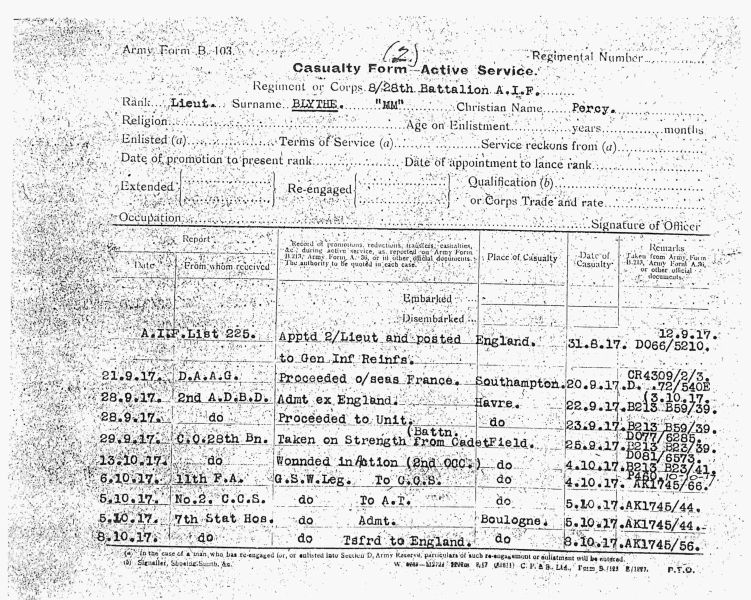 (2.)
Army Form B. 103. Regimental Number
Casualty Form—Active Service.
Regiment or Corps 8/28th Battalion A.I.F.
Rank Lieut. Surname BLYTHE. "MM" Christian Name Percy.
Religion Age on Enlistment years months
Enlisted (a) Terms of Service (a) Service reckons from (a)
Date of promotion to present rank Date of appointment to lance rank
Extended Re-engaged Qualification (b)
or Corps Trade and rate
Occupation Signature of Officer
Report Record of promotions, reductions, transfers, casualties, &c., during active service, as reported on Army Form B.213, Army Form A. 36, or in other official documents. The authority to be quoted in each case. Place of Casualty Date of Casualty Remarks Taken from Army Form B.213, Army Form A.36, or other official documents.
Date From whom received
Embarked
Disembarked
A.I.F. List 225. Apptd 2/Lieut and posted England. 31.8.17. 12.9.17. DO66/5210.
to Gen Inf Reinfs.
21.9.17. D.A.A.G. Proceeded o/seas France. Southampton. 20.9.17. CR4309/2/3. D. .72/540E
28.9.17. 2nd A.D.B.D. Admt ex England. Havre. 22.9.17. (3.10.17. B213 B59/39.
28.9.17. do Proceeded to Unit. do 23.9.17. B213 B59/39.
29.9.17. C.O.28th Bn. Taken on Strength from Cadet (Battn. Field. 25.9.17. DO77/6285. B213 B23/39.
13.10.17. do Wonnded in Action (2nd OCC.) do 4.10.17. DO81/6573. B213 B23/41.
6.10.17. 11th F.A. G.S.W.Leg. To C.C.S. do 4.10.17. AK1745/66.
5.10.17. No.2. C.C.S. do To A.T. do 5.10.17. AK1745/44.
5.10.17. 7th Stat Hos. do Admt. Boulogne. 5.10.17. AK1745/44.
8.10.17. do do Tsfrd to England. do 8.10.17. AK1745/56.
(a) In the case of a man, who has re-engaged for, or enlisted into Section D, Army Reserve, particulars of such re-engagement or enlistment will be entered.
(b) Signaller, Shoeing Smith, &c. C. P. & S. Ltd., P.T.O.